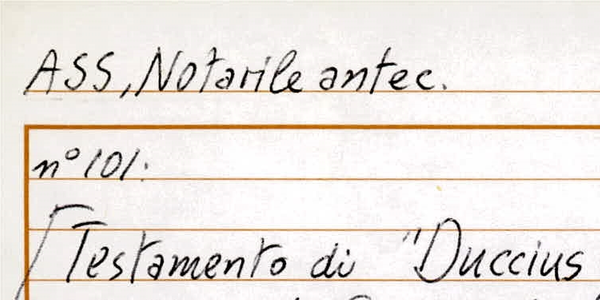 ASS, Notarile antec.
n° 101:
Testamento di "Duccius